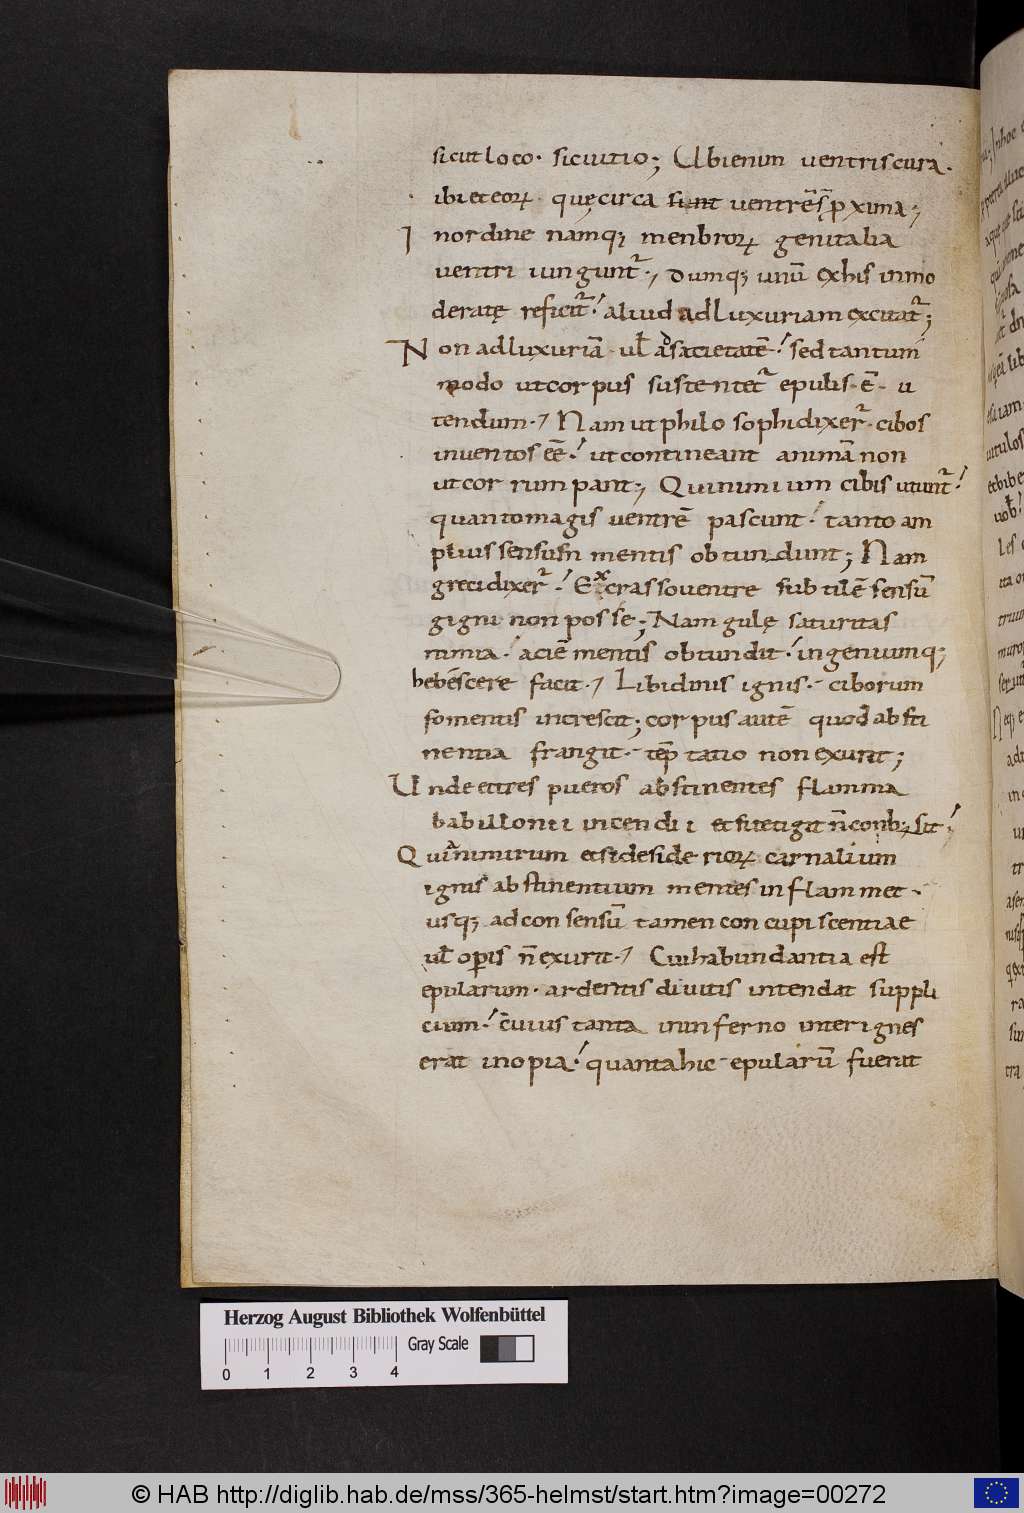 sicut loco· sic uitio; Ubi enim uentris cura·
ibi et eorꝝ· quę circa sunt uentrē s̄ ꝓxima;
In ordine namq; menbrorꝝ genitalia
uentri iungunt᷑·, dumq; unū ex his inmo
deratę reficit᷑·/ aliud ad luxuriam excitat᷑;
Non ad luxuriā· uł ad sacietatē·/ sed tantum
modo ut corpus sustentet᷑ epulis· ē· u
tendum·, Nam ut philosophi dixer᷑· cibos
inuentos eē·/ ut contineant animā non
ut corrumpant·, Qui nimium cibis utunt᷑·/
quanto magis uentrē pascunt·/ tanto am
plius sensum mentis obtundunt; Nam
greci dixer᷑·/ Ex crasso uentre subtilē sensū
gigni non posse; Nam gulę saturitas
nimia·/ aciē mentis obtundit·/ ingeniumq;
hebēscere facit·, Libidinis ignis·· ciborum
fomentis increscit; corpus autē quod absti
nentia frangit·· tēptatio non exurit;
Unde et tres pueros abstinentes flamma
babilloni incendii etsi tetigit n̄ conbusit·/
Quī nimirum etsi desideriorꝝ carnalium
ignis abstinentium mentes inflammet·
usq; ad consensū tamen concupiscentiae
uł oꝑis n̄ exurit·, Cui habundantia est
epularum· ardentis diuitis intendat suppli
cium·/ cuius tanta in inferno inter ignes
erat inopia·/ quanta hic epularū fuerat
Herzog August Bibliothek Wolfenbüttel
Gray Scale
0 1 2 3 4
© HAB http://diglib.hab.de/mss/365-helmst/start.htm?image=00272